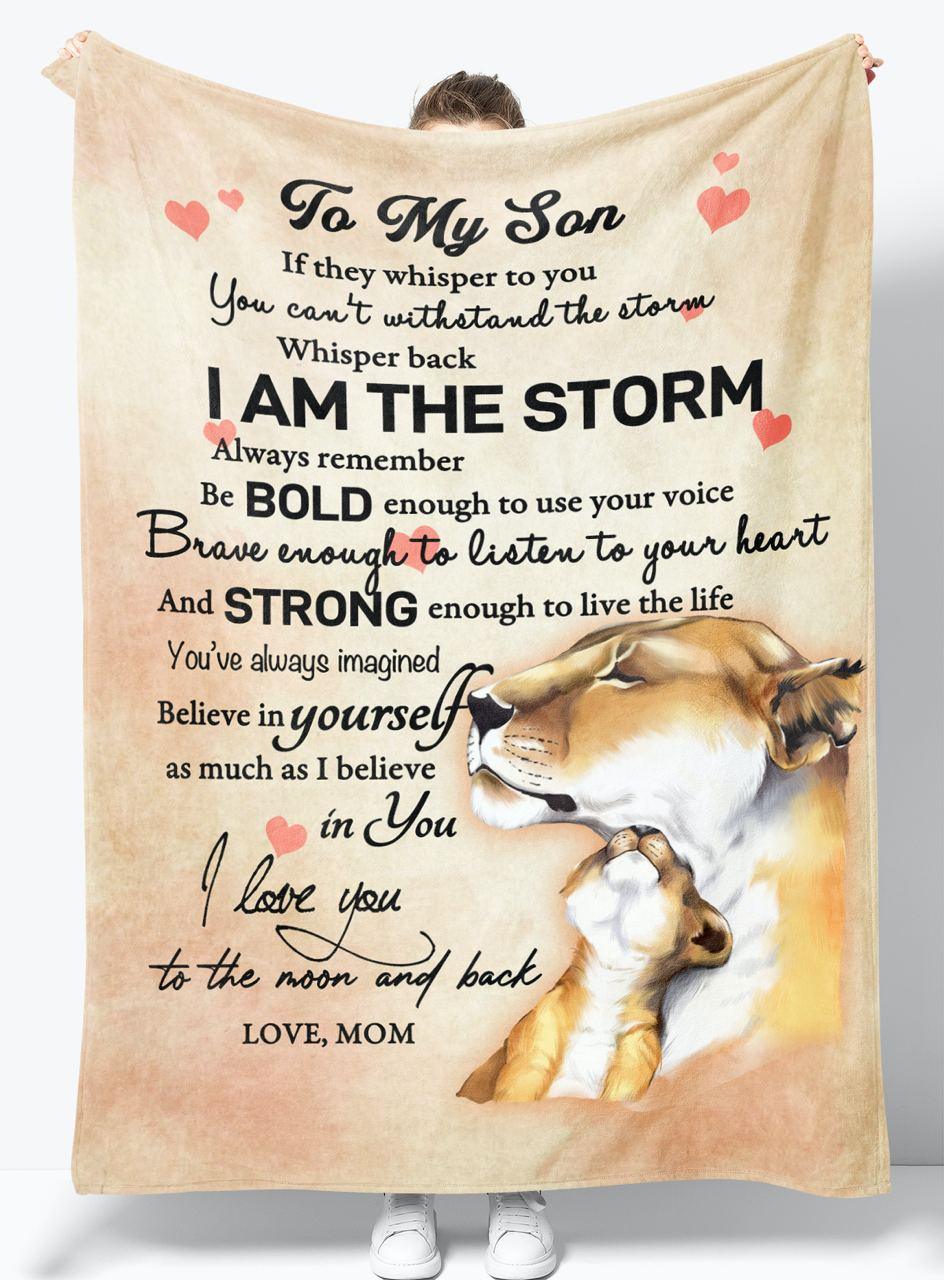 To My Son
If they whisper to you
You can't withstand the storm
Whisper back
I AM THE STORM
Always remember
Be BOLD enough to use your voice
Brave enough to listen to your heart
And STRONG enough to live the life
You've always imagined
Believe in yourself
as much as I believe
in You
I love you
to the moon and back
LOVE, MOM